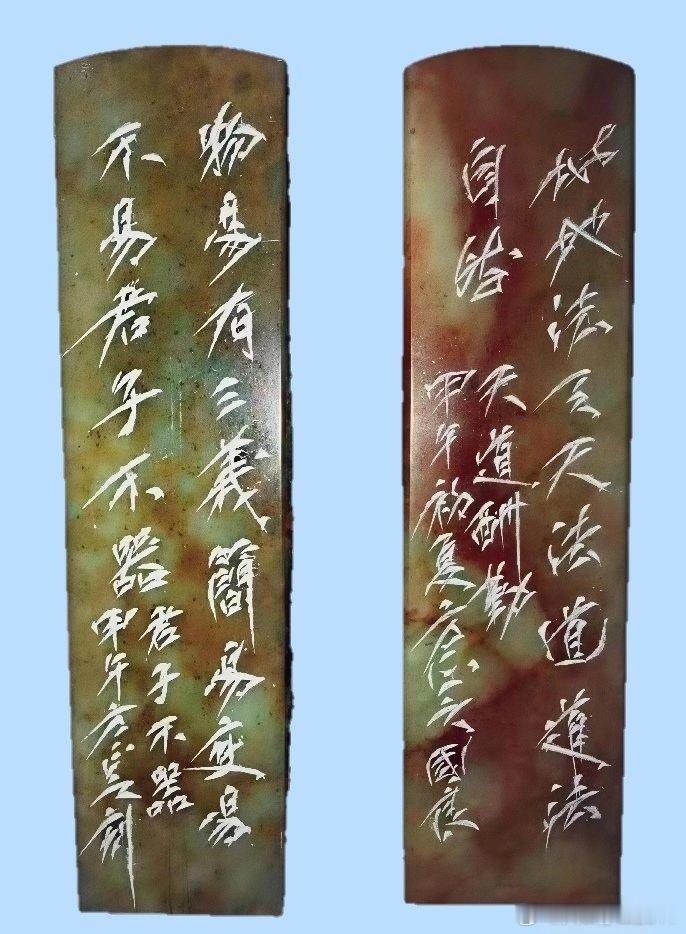 物易有三義簡易變易
不易君子不器
君子不器
甲午刻
地法天天法道道法
自然
天道酬勤
甲午初夏國慶